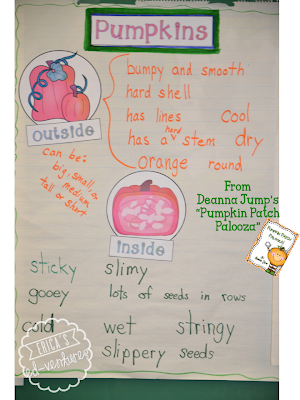 Pumpkins
bumpy and smooth
hard shell
has lines cool
has a hard stem dry
orange round
outside
can be:
big, small, or
medium,
tall or short
From
Deanna Jump's
"Pumpkin Patch
Palooza"
inside
sticky slimy
gooey lots of seeds in rows
cold wet stringy
slippery seeds
ERICA'S
ed-ventures